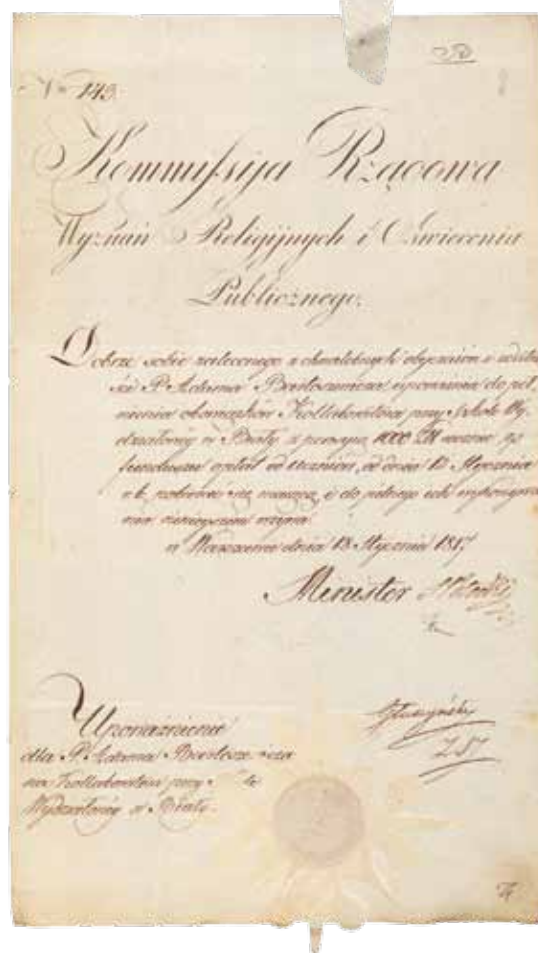 149.
Kommissija Rządowa
Wyznań Religijnych i Oświecenia
Publicznego.
Dobrze sobie zaleconego z chwalebnych obyczaiów i
P. Adama Bartoszewicza upoważnia do peł,
nienia obowiązków Kollaboratora przy Szkole Wy,
działowéy w Biały z pensyą 1000 Zł
funduszu opłat od uczniów, od dnia 13 Stycznia
r. b. i do
w Warszawie dnia 13 Stycznia 1817
Minister
Upoważnienie
dla P. Adama Bartoszewicza
na Kollaboratora przy
Wydziałowéy w Biały.